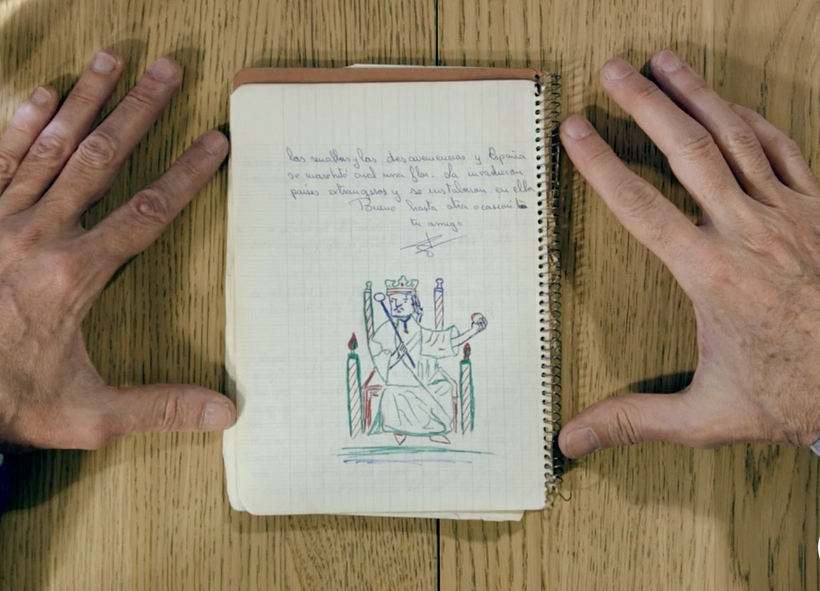 las revueltas y las desavenencias y España
se marchitó cual una flor. La invadieron
países extrangeros y se instalaron en ella
Bueno hasta otra ocasión
tu amigo